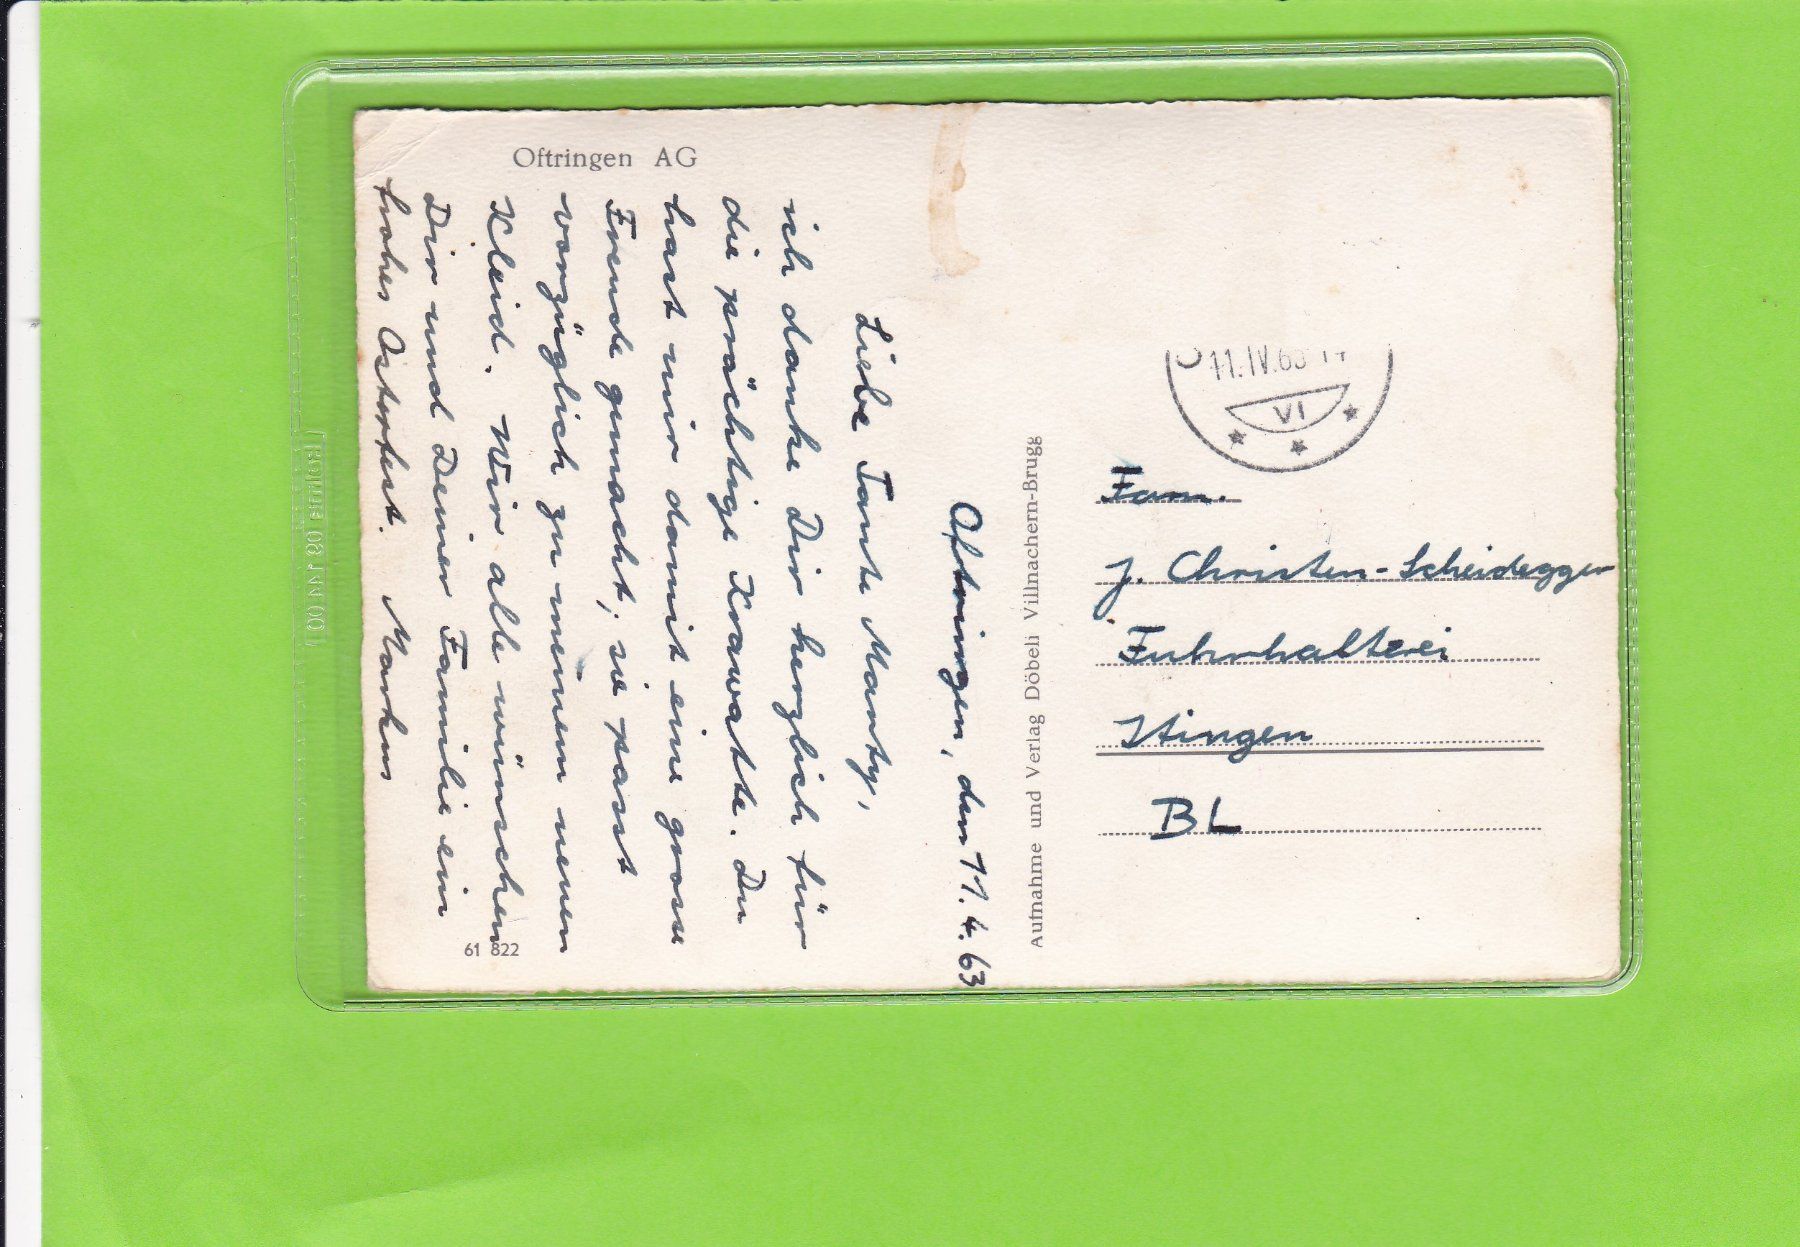 Oftringen AG
Oftringen, den 11.4.63
Liebe Tante Marty,
ich danke Dir herzlich für
die prächtige Krawatte. Du
hast mir damit eine grosse
Freude gemacht, sie passt
vorzüglich zu meinem neuen
Kleid. Wir alle wünschen
Dir und Deiner Familie ein
frohes Osterfest. Markus
61 822
Aufnahme und Verlag Döbeli Villnachern-Brugg
11.IV.63
VI
Fam.
J. Christen-Scheidegger
Fuhrhalterei
Itingen
BL